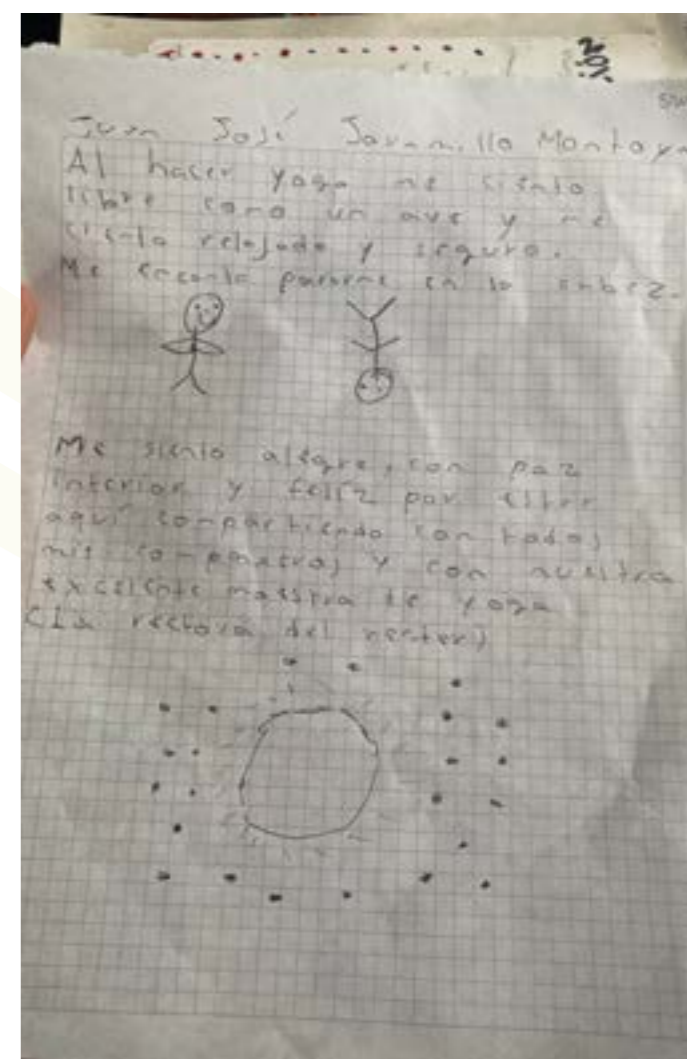 Juan José Jaramillo Montoya
Al hacer yoga me siento
libre como un ave y me
siento relajado y seguro.
Me encanta pararme en la cabeza.
Me siento alegre, con paz
interior y feliz por estar
aquí compartiendo con todos
mis compañeros y con nuestra
excelente maestra de yoga
(la rectora del nester)